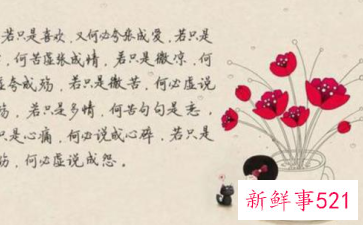 若只是喜欢，又何必夸张成爱，若只是
，何苦虚张成情，若只是微凉，何
夸成殇，若只是微苦，何必虚说
殇，若只是多情，何苦句句是恋，
只是心痛，何必说成心碎，若只是
，何必虚说成怨。
新鲜事521